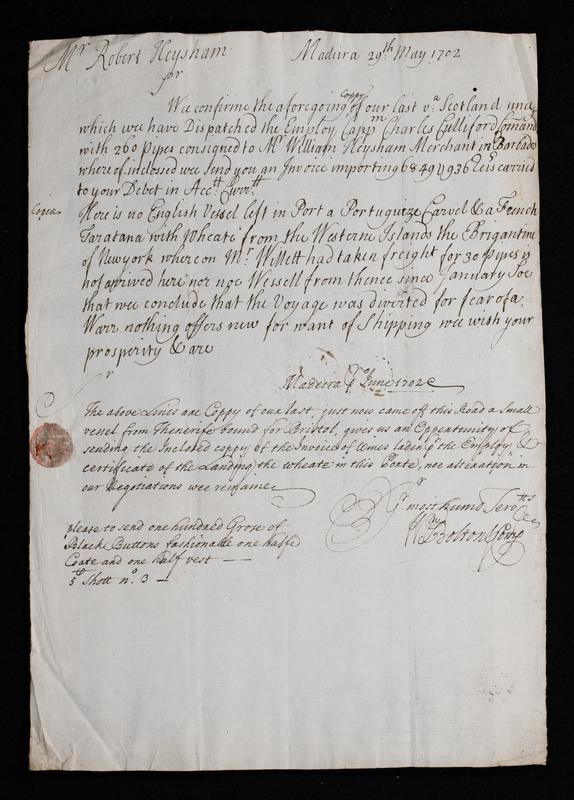 Mr Robert Heysham Madeira 29th May 1702
Sr
Coppy
We confirme the aforegoing of our last va Scotland since
which we have Dispatched the Employ Cappn Charles Culliford Comand
with 260 Pipes consigned to Mr William Heysham Merchant in Barbado
where of inclosed wee send you an Invoice importing carried
to your Debet in Acctt Currtt
Copia Here is no English Vessel left in Port a Portuguize Carvel & a French
Taratana with Wheate from the Western Islands the Brigantine
of Newyork whereon Mr Willett had taken freight for 30 Pipes is
not aprived here nor noe Vessell from thence since January Soe
that we conclude that the Voyage was diverted for fear of a
Warr nothing offers new for want of Shipping wee wish your
prosperity & are
Sr
Madeira June 1702
The above Lines are Coppy of our last, just now came off this Road a Small
vessel from Thenerife bound for Bristol, gives us an Oppertunity of
sending the Inclosed coppy of the Invoice of Wines laden the Employ, &
certificate of the Landing the wheate in this Porte, noe alteration in
our Negotiations wee remaine
Sr Yr most humb Servtts
please to send one hundred Grose of
Black Buttons fashionable one halfe
Coate and one half vest
Shott no. 3
Wm Bolton &